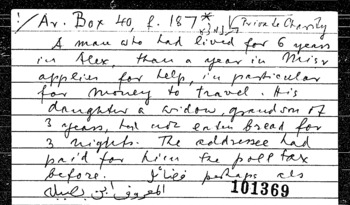 ! Ar. Box 40, f. 187* Private Charity
A man who had lived for 6 years
in Alex, than a year in Misr
applies for help, in particular
for money to travel. His
daughter a widow, grandson of
3 years, had not eaten bread for
3 nights. The addressee had
paid for him the poll tax
before. perhaps als
المعروف ابن
101369